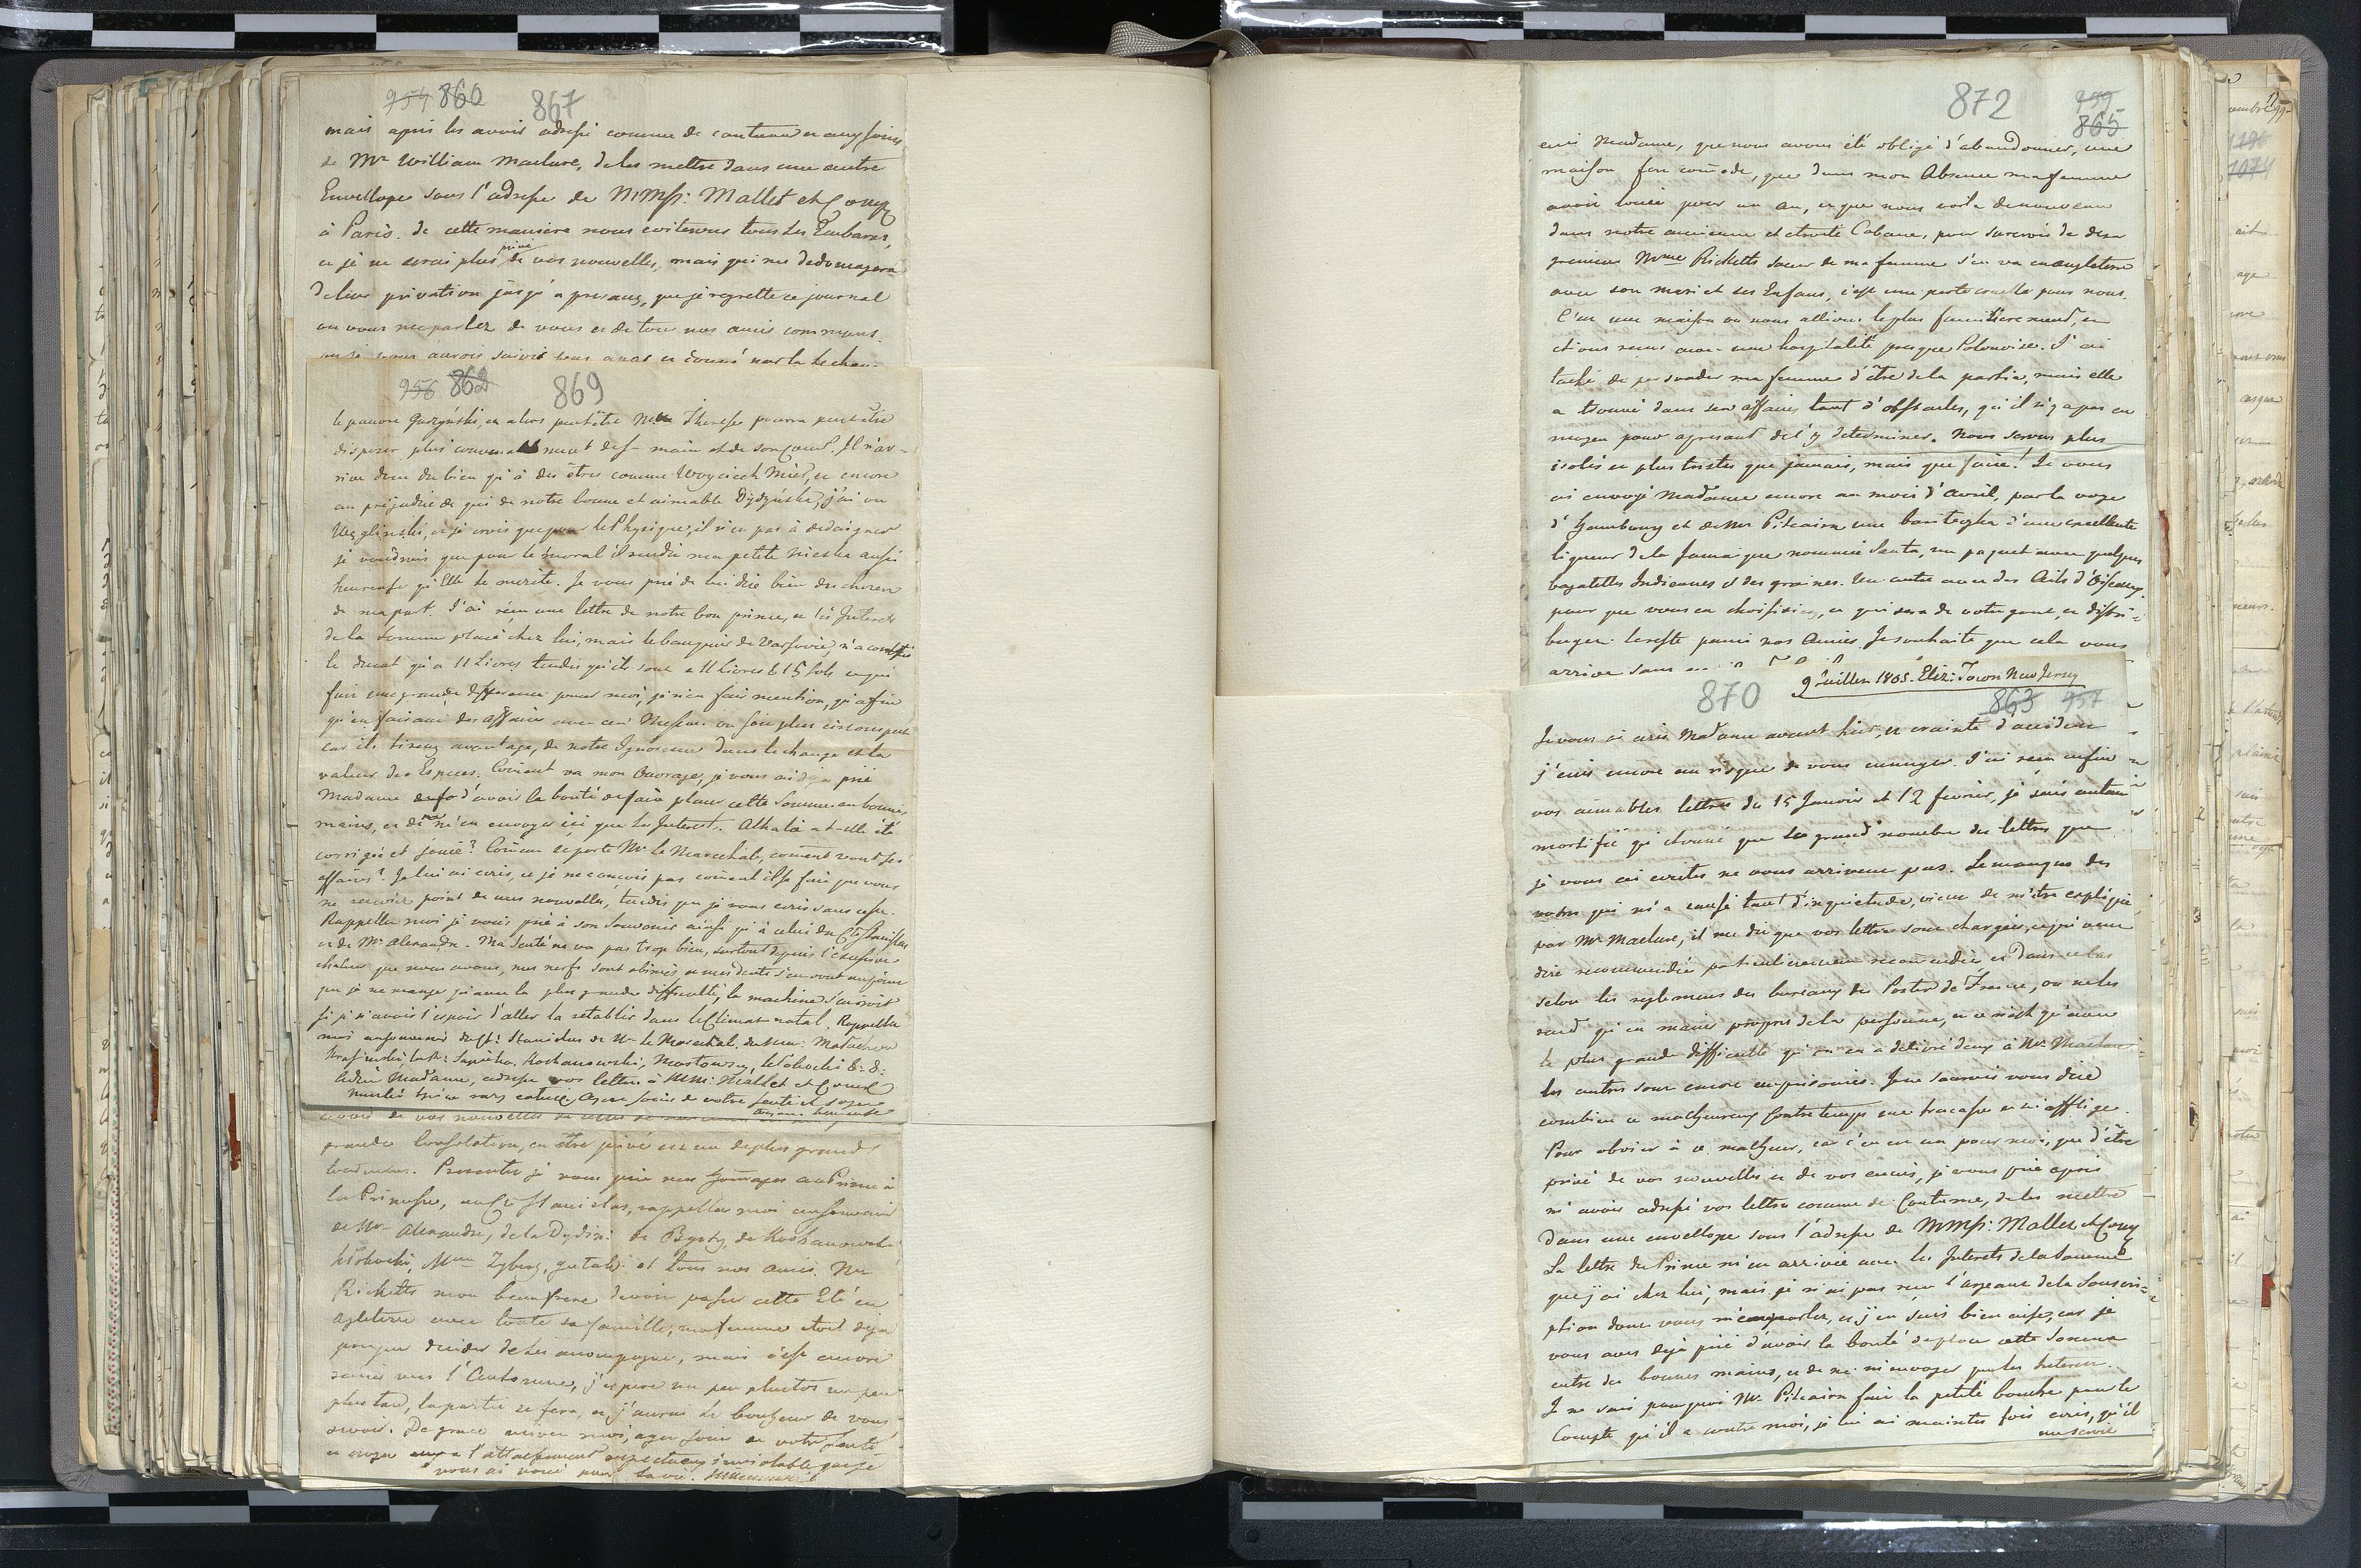 954 860 867
mais après les avoir adressé comme de coutume aux soins
de Mr William Maclure, de les mettre dans une autre
Envellope sous l'adresse de M:Mss: Mallet et Comp
à Paris. de cette maniere nous eviterons tous les Embaras,
et je ne serai plus privé de vos nouvelles, mais qui me dedomagera
de leur privation jusqu'a present, que je regrette ce journal
ou vous me parlez de vous et de tous nos amis communs.
956 862 869
le pauvre et alors peutêtre Mlle Therese pourra peut être
disposer plus de sa main et de son Coeur. Il n'ar-
rive donc du bien qu'à des êtres comme Woyciech Mier, et encore
au préjudice de qui de notre bonne et aimable j'ai vu
et je crois que pour le Physique, il n'est pas à dedaigner
je voudrois que pour le moral il rendit ma petite Niecke aussi
heureuse qu'Elle le merite. Je vous prie de lui dire bien des choses
de ma part. J'ai reçu une lettre de notre bon prince, et les Interets
de la Somme placé chez lui, mais le banquier de Varsovie n'a compté
le ducat qu'a 11 Livres tandis qu'ils sont a 11 Livres & 15 sols ce qui
fait une grande difference pour moi, je n'en fais mention, qu'afin
qu'en faisant des affaires avec ces Messieurs on soit plus circonspect
car ils tirent avantage, de notre Ignorance dans le change et la
valeur des Especes. Coment va mon Ouvrage, je vous ai déja prié
Madame d'avoir la bonté de faire placer cette Somme en bonnes
mains, et de ne m'en envoyer ici que les Interets. Athalie a-t-elle été
corrigée et jouée? Coment se porte Mr le Marechal, coment vont ses
affaires? Je lui ai ecris, et je ne conçois pas coment il se fait que vous
ne receviez point de mes nouvelles, tandis que je vous ecris sans cesse.
Rappellez moi je vous prie à son Souvenir ainsi qu'à celui du Cte Stanislas
et de Mr Alexandre. Ma Santé ne va pas trop bien, surtout depuis l'excessive
chaleur que nous avons, mes nerfs sont abimés et mes dents s'en vont au point
que je ne mange qu'avec la plus grande difficulté, la machine s'useroit
si je n'avois l'espoir d'aller la retablir dans le Climat natal. Rappellez
moi au souvenir du Ct: Stanislas de Mr le Marechal, de Mm: Matachow
Sapieha. Kochanowski, Mostowsy, &: &:
Adieu Madame, adressez vos lettres à MM: Mallet et Comp
ayez soin de votre santé et soyez
avoir de vos nouvelles
grande Consolation, en être privé est un de plus grands
tourmens. Presentez je vous prie mes homages au Prince à
la Princesse, au Cte Stanislas, rappellez moi au souvenir
de Mr Alexandre, de la Dydin: de Bysty, de Kochanowski
Mme Zyberg, et tous nos amis. Mr
Ricketts mon beau frere devoit passer cette Eté en
Agleterre avec toute sa famille, ma femme etoit deja
presque decidée de les accompagner, mais c'est encore
remis vers l'Automne, j'espere un peu plustot un peu
plus tard, la partie se fera, et j'aurai le bonheur de vous
revoir. De grace ecrivez moi, ayez soin de votre santé
et croyez a l'attachement respectueux & inviolable que je
vous ai voué pour la vie.
872 959 865
ecris Madame, que nous avons été obligé d'abandonner, une
maison fort comode, que dans mon Absence ma femme
avoit louée pour un an, et que nous voila de nouveau
dans notre ancienne et etroite Cabane, pour surcroit de desa
gremens Mme Ricketts soeur de ma femme s'en va en angleterre
avec son mari et ses Enfans, c'est une perte cruelle pour nous.
C'est une maison ou nous allions le plus familierement, et
etions reçus avec une hospitalité presque Polonoise. J'ai
taché de persvader ma femme d'être de la partie, mais elle
a trouvé dans ses affaires tant d'obstacles, qu'il n'y a pas eu
moyen pour apresent de l'y determiner. Nous serons plus
isolés et plus tristes que jamais, mais que faire! Je vous
ai envoyé Madame encore au mois d'Avril, par la voye
d'Hambourg et de Mr Pitcairn une d'une excellente
liqueur de la Jamaique nommée Santa, un paquet avec quelques
bagatelles Indiennes & des graines. Un autre avec des Ails d'Oiseaux,
pour que vous en choisissiez, ce qui sera de votre gout, et distri-
buyer le reste parmi nos Amies. Je souhaite que cela vous
arrive sans
9 Juillet 1805. Eliz: Town New Jersey
870 863 957
Je vous ai ecris Madame avant hier, et crainte d'accident
j'ecris encore au risque de vous ennuyer. J'ai reçu enfin
vos aimables lettres du 15 Janvier et 12 fevrier, je suis autant
mortifié qu'etonné que le grand nombre des lettres que
je vous ai ecrites ne vous arrivent pas. Le manque des
votres qui m'a causé tant d'inquietude, vient de m'être expliqué
par Mr Maclure, il me dit que vos lettres sont chargées, ce qui veut
dire recommendées particulierement recomendées et dans ce cas
selon les reglemens des bureaux des Postes de France, on ne les
rend qu'en mains propres de la personne, et ce n'est qu'avec
la plus grande difficulté qu'on en a delivré deux à Mr Maclure
les autres sont encore emprisonées. Je ne saurois vous dire
combien ce malheureux Contretemps me tracasse et m'afflige.
Pour obvier à ce malheur, car c'en est un pour moi, que d'être
privé de vos nouvelles et de vos ecris, je vous prie après
m'avoir adressé vos lettres comme de Coutume, de les mettre
dans une envellope sous l'adresse de MMss: Mallet et Comp
La lettre du Prince m'est arrivée avec les Interets de la Somme
que j'ai chez lui, mais je n'ai pas reçu l'argent de la Souscri-
ption dont vous me parlez, et j'en suis bien aise, car je
vous avez déja prié d'avoir la bonté de placer cette Somme
entre des bonnes mains, et de ne m'envoyer que les Interets.
Je ne sais pourquoi Mr Pitcairn fait la petite bouche pour le
Compte qu'il a contre moi, je lui ai maintes fois ecris, qu'il